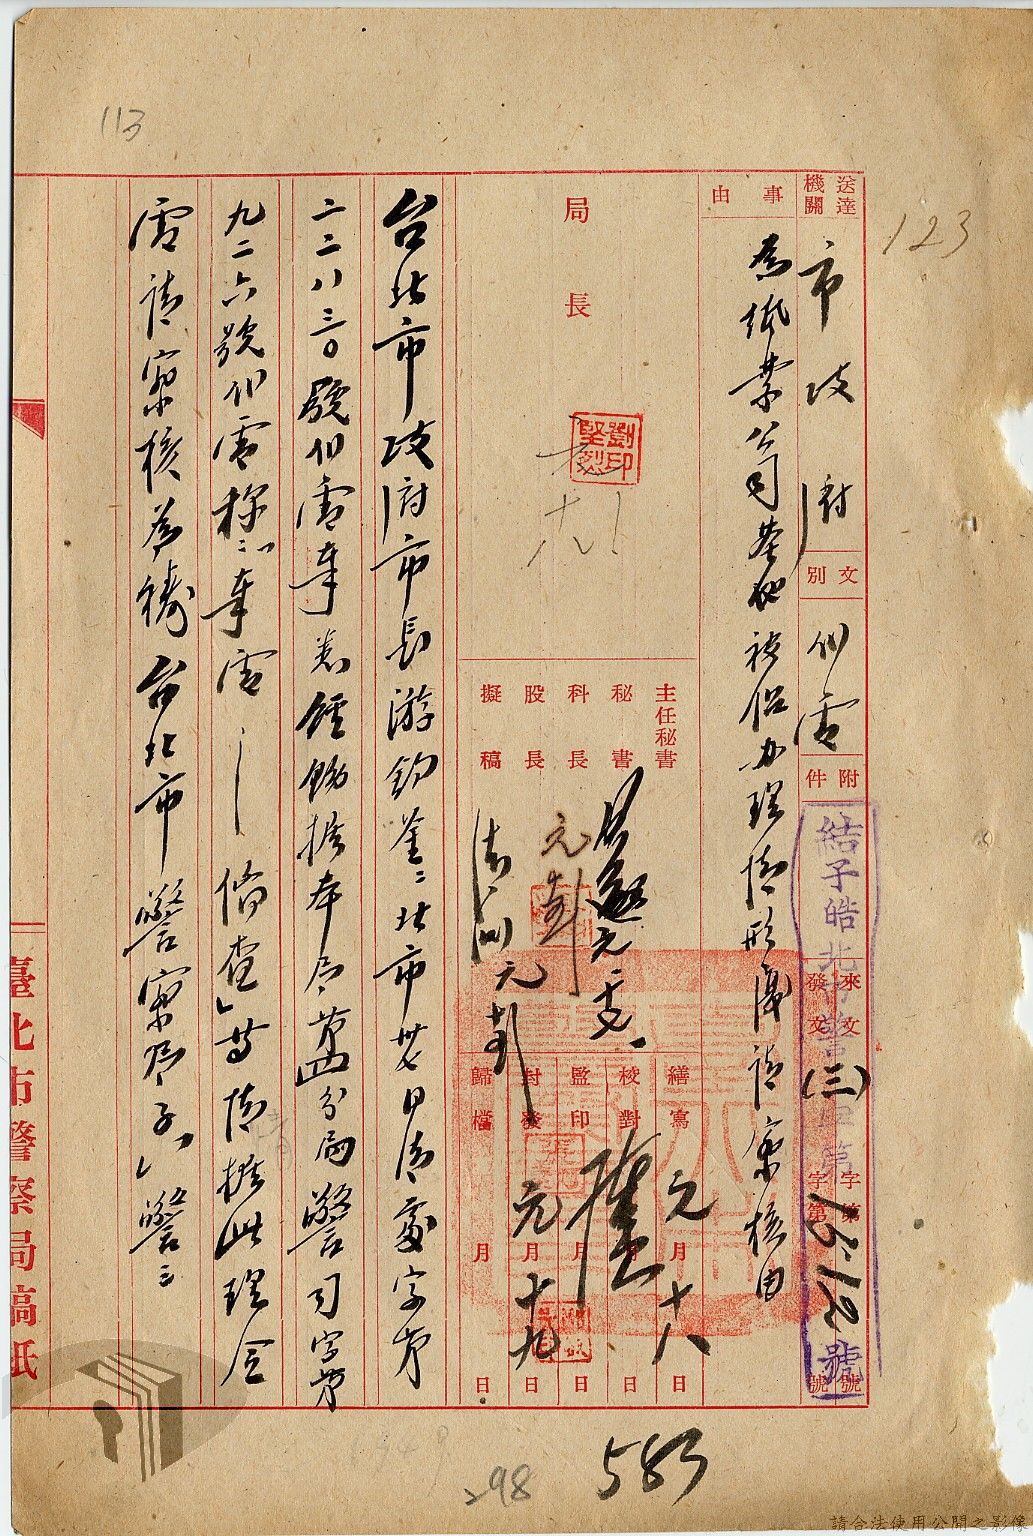 113
123
送達機關
市政府
文別
代電
附件
結子皓北市警(三)字第1512號
來文 字第 號
發文 字第 號
事由
為紙業公司基地被侵办理情形復請察核由
局長
劉堅烈印
主任秘書
秘書
科長
股長
擬稿
繕寫 元月十八日
校對 月 日
監印 月 日
封發 元月十九日
歸檔 月 日
台北市政府市長游鈞鑒：北市 日清處字第
二二八三〇號代電奉悉經飭據本局第四分局警司字第
九二六號代電稱：「奉電 備查」等情據此理合
電請察核為禱台北市警察局 子 警三
臺北市警察局稿紙
583
298
請合法使用公開之影像